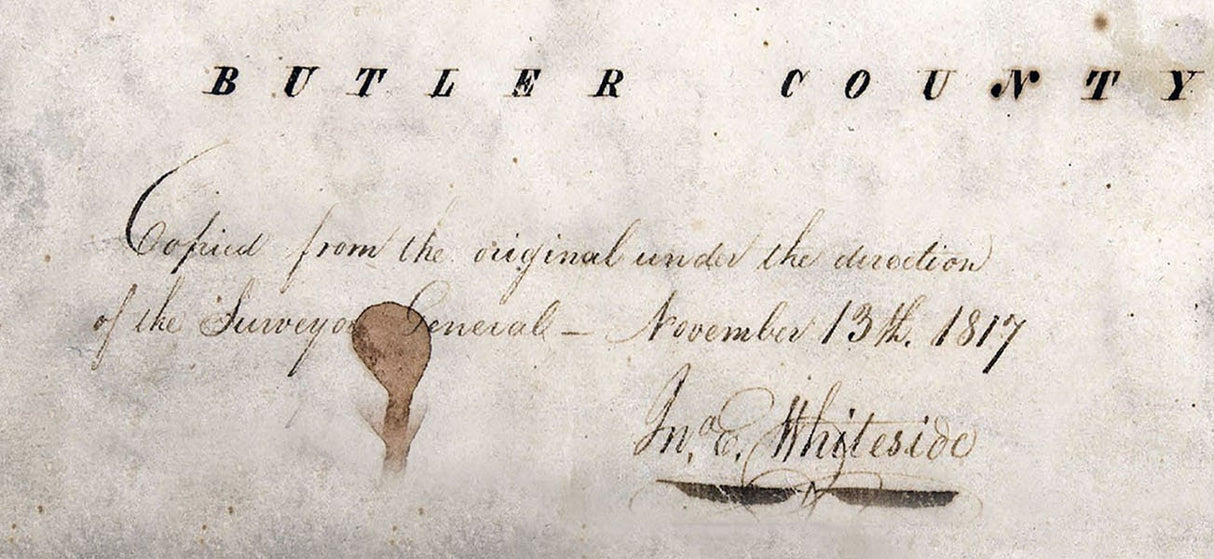 BUTLER COUNTY
Copied from the original under the direction
of the Surveyor General – November 13th. 1817
Jno. E. Whiteside